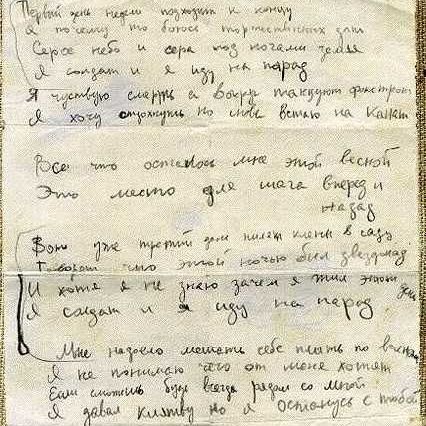 Первый день недели подходит к концу
а почему то боюсь торжественных дат
Серое небо и сера под ногами земля
Я солдат и я иду на парад
Я чувствую смерть а вокруг танцуют фокстрот
Я хочу отдохнуть но снова встаю на канат
Все что осталось мне этой весной
Это место для шага вперед и
назад
Вот уже третий день пилят клены в саду
Говорят что этой ночью был звездопад
И хотя я не знаю зачем я жил этот день
Я солдат и я иду на парад
Мне надоело мешать себе спать по
Я не понимаю чего от меня хотят
Если сможешь будь всегда рядом со мной
Я давал клятву но я останусь с тобой